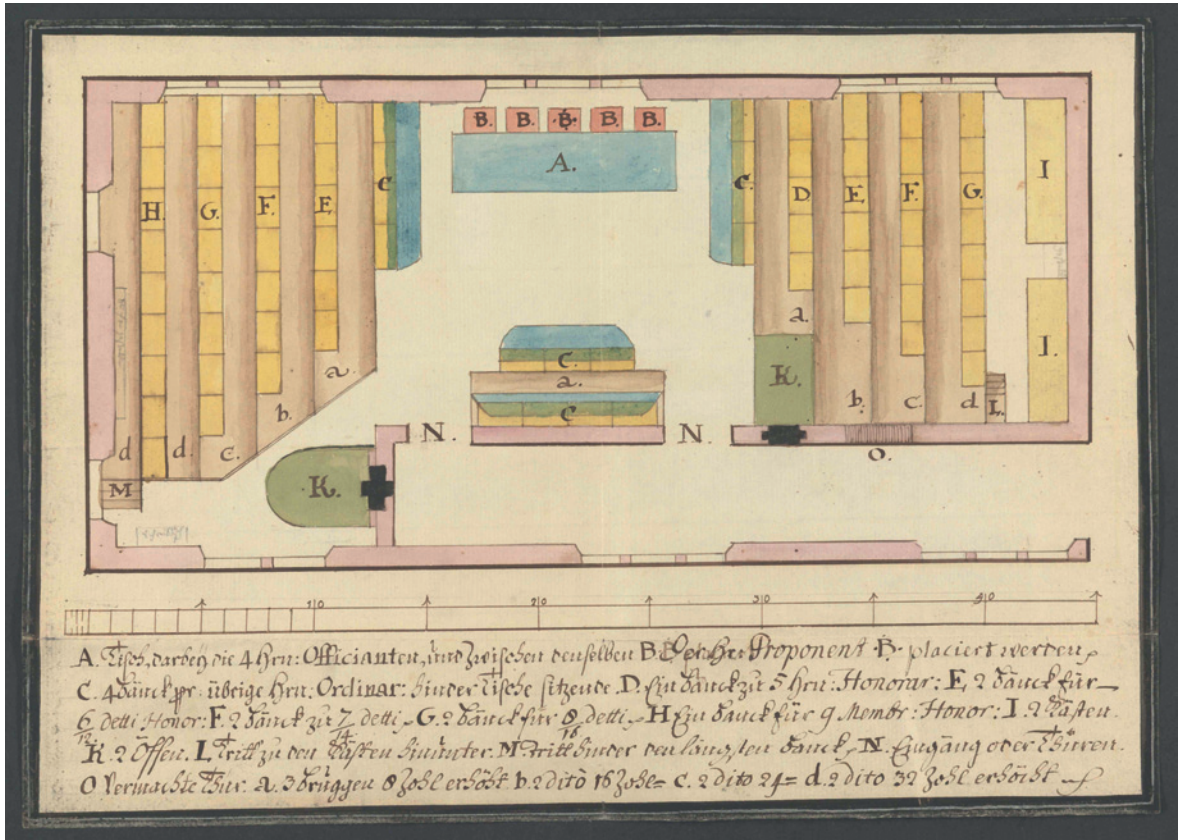 B. B. B. B. B.
A.
H. G. F. E. C
C. D. E. F. G. I
a. b. c. d d
C.
a.
C
a. K. b. c. d L. I.
N. N.
O.
M K.
10 20 30 40
A. Tisch, darbey die 4 Hrn: Officianten, und Zwischen denselben B. der Hr: Proponent B. placiert werden
C. 4 Bänck pr: übrige Hrn: Ordinar: hinder Tische sitzende. D. Ein Banck zu 5 Hrn: Honorar: E. 2 Bänck für
6 detti Honor: F. 2 Bänck zu 7 detti G. 2 Bänck für 8 detti H Ein Banck für 9 Membr: Honor: I. 2 Kästen.
12 14 16
K. 2 Öffen. L. Tritt zu den Kästen hinunter. M. Tritt hinder den längsten Banck. N. Eingäng oder Thüren.
O Vermachte Thür. a. 3 brüggen 8 Zohl erhöht b. 2 dito 16 Zohl= c. 2 dito 24= d. 2 dito 32 Zohl erhöcht